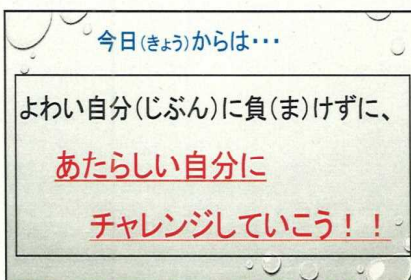 今日(きょう)からは・・・
よわい自分(じぶん)に負(ま)けずに、
あたらしい自分に
チャレンジしていこう！！